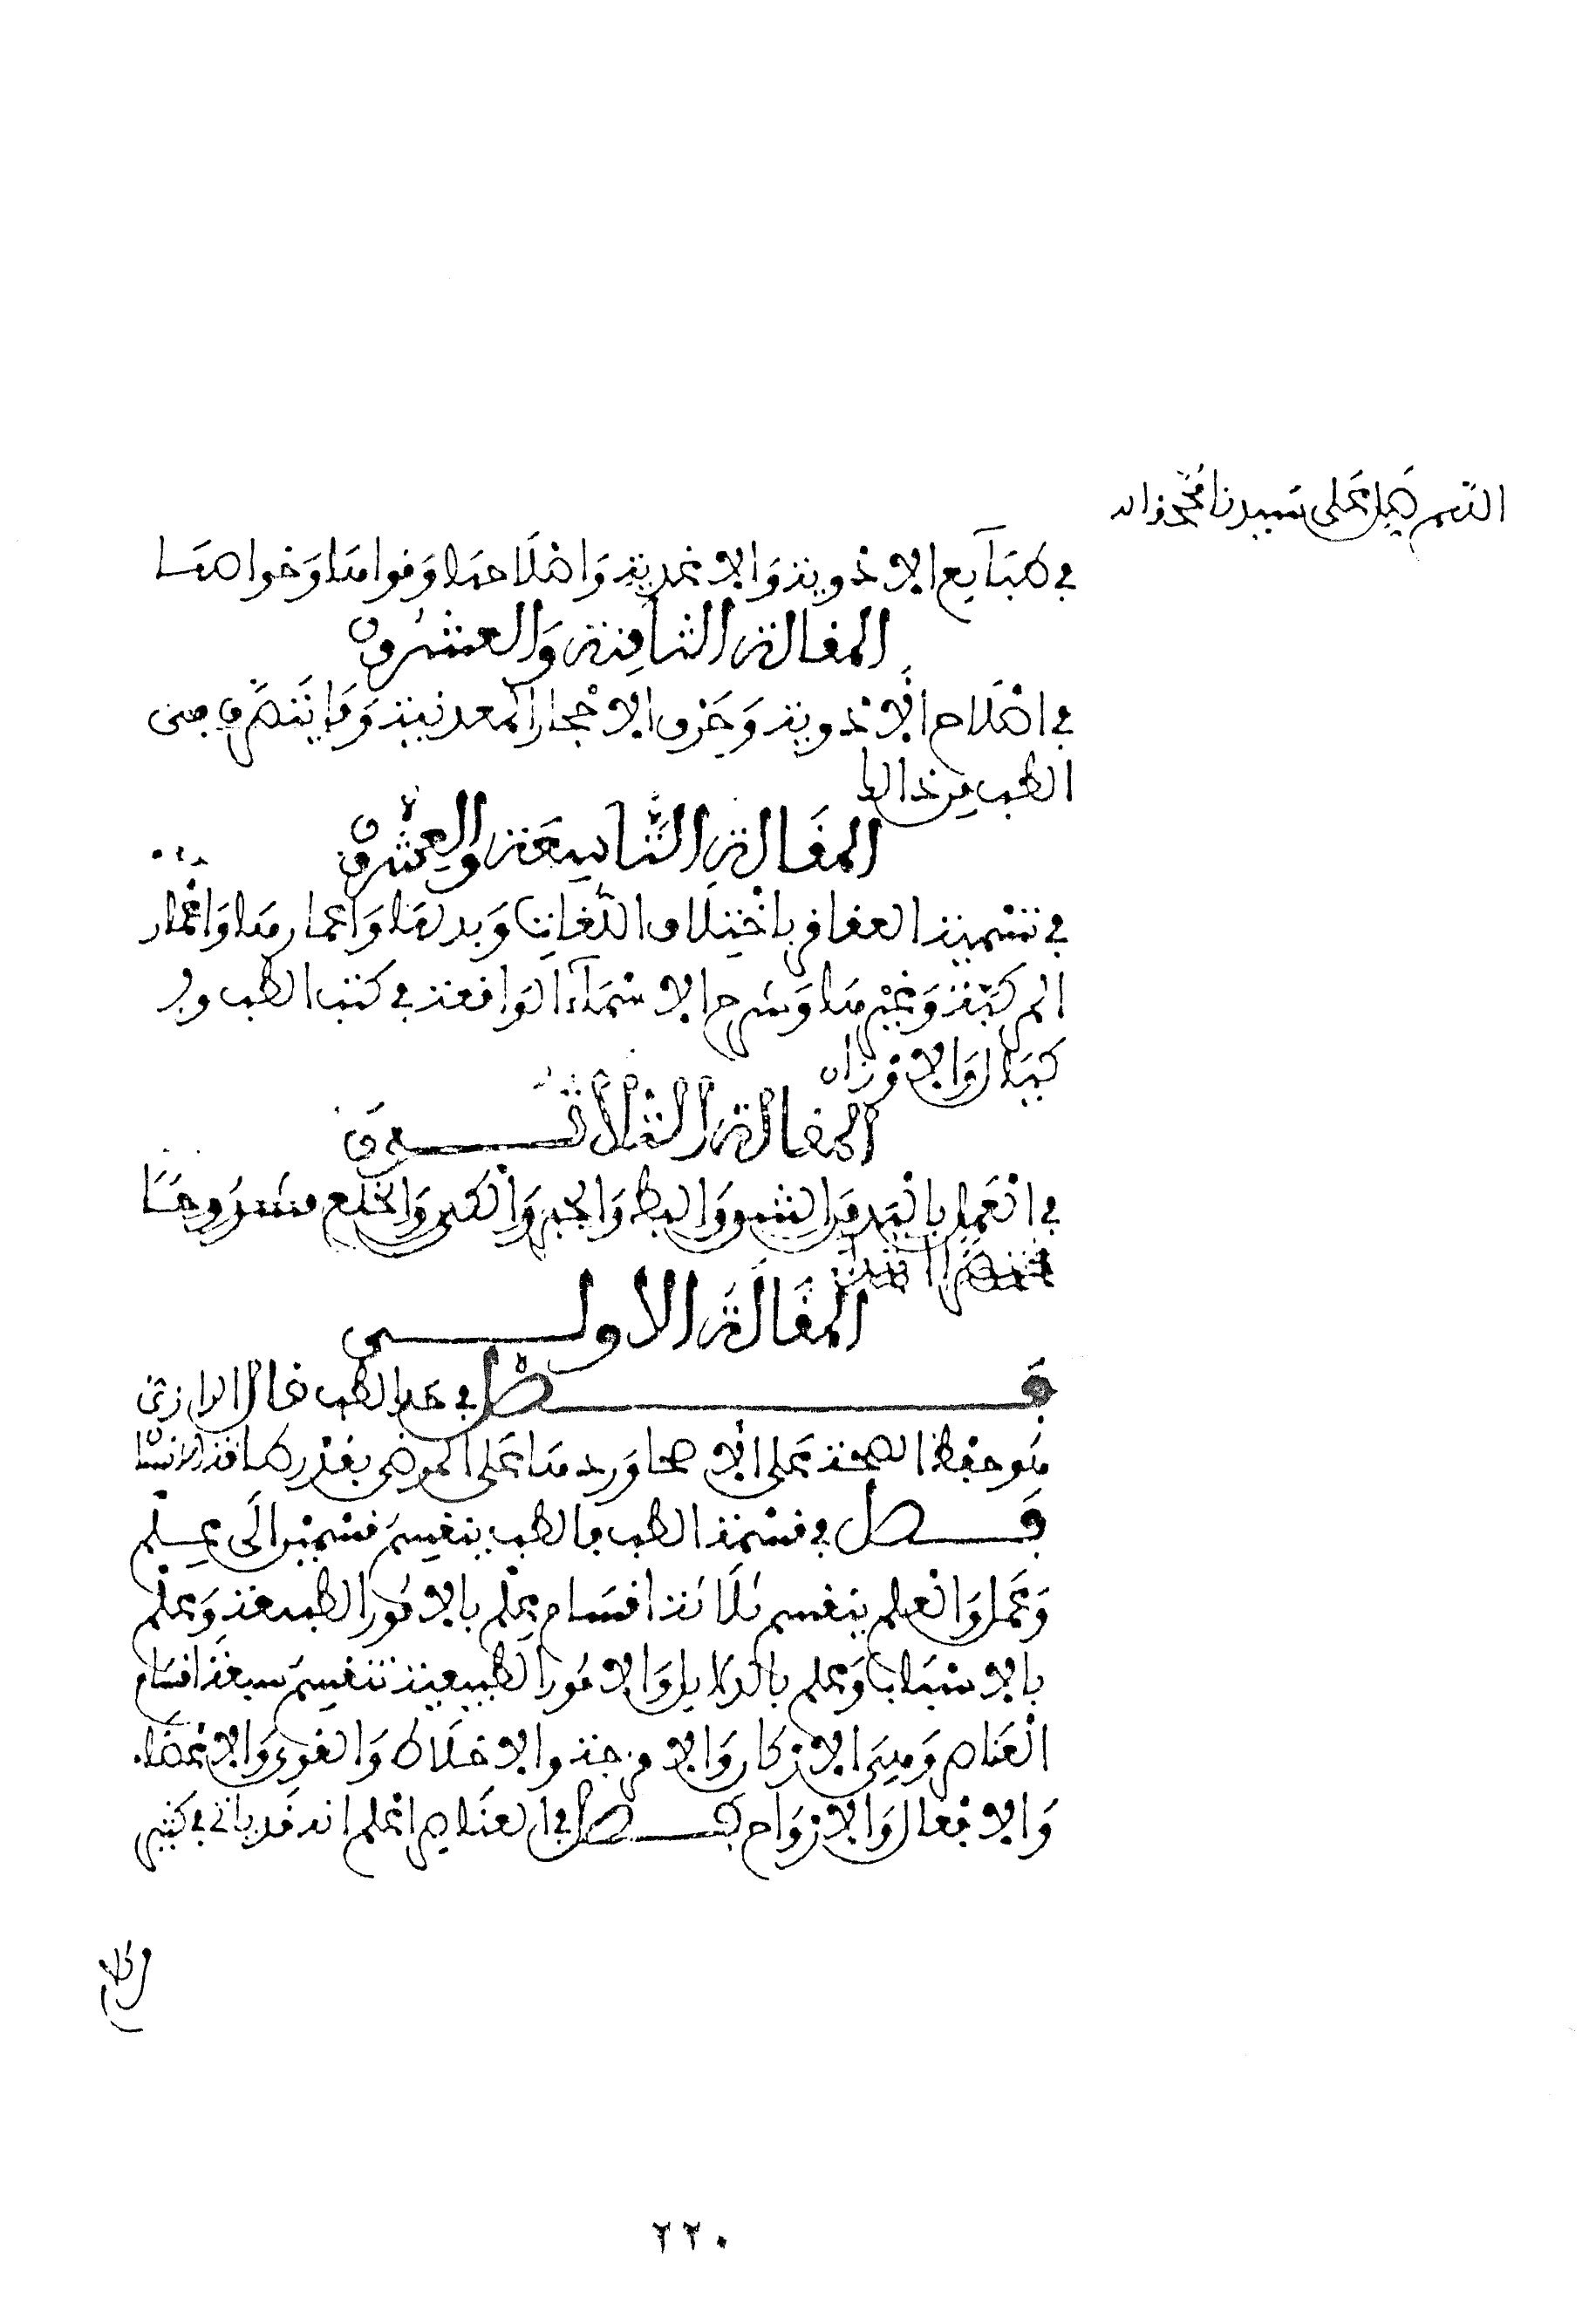 اللهم صل على سيدنا محمد واله
في طبآيع الادوية والاغذية واصلاحها وقواها وخواصها
المقالة الثامنة والعشرون
في اصلاح الادوية وحرق الاحجار المعدنية وما يتصرف من
الطب من ذالك
المقالة التاسعة والعشرون
في تسمية العقاقر باختلاف اللغات وبدلها واعمارها واعمار
المركبة وغيرها وشرح الاسمآء الواقعة في كتب الطب والا
كيال والاوزان
المقالة الثلاثون
في العمل باليد من الشق والبط والجبر والكي والخلع مشروحا
المقالة الاولى
فصل في حد الطب قال الرازي
هو حفظ الصحة على الاصحا وردها على المرضى بقدر طاقة الانسان
فصل في قسمة الطب فالطب ينقسم قسمين الى علم
وعمل والعلم ينقسم ثلاثة اقسام علم بالامور الطبيعة وعلم
بالاسباب وعلم بالدلايل والامور الطبيعية تنقسم سبعة اقسام
العناصر وهي الاركان والامزجة والاخلاط والقوى والاعضاء
والافعال والارواح فصل في العناصر اعلم انه قد ياتي في كثير
من كلام
٢٢٠